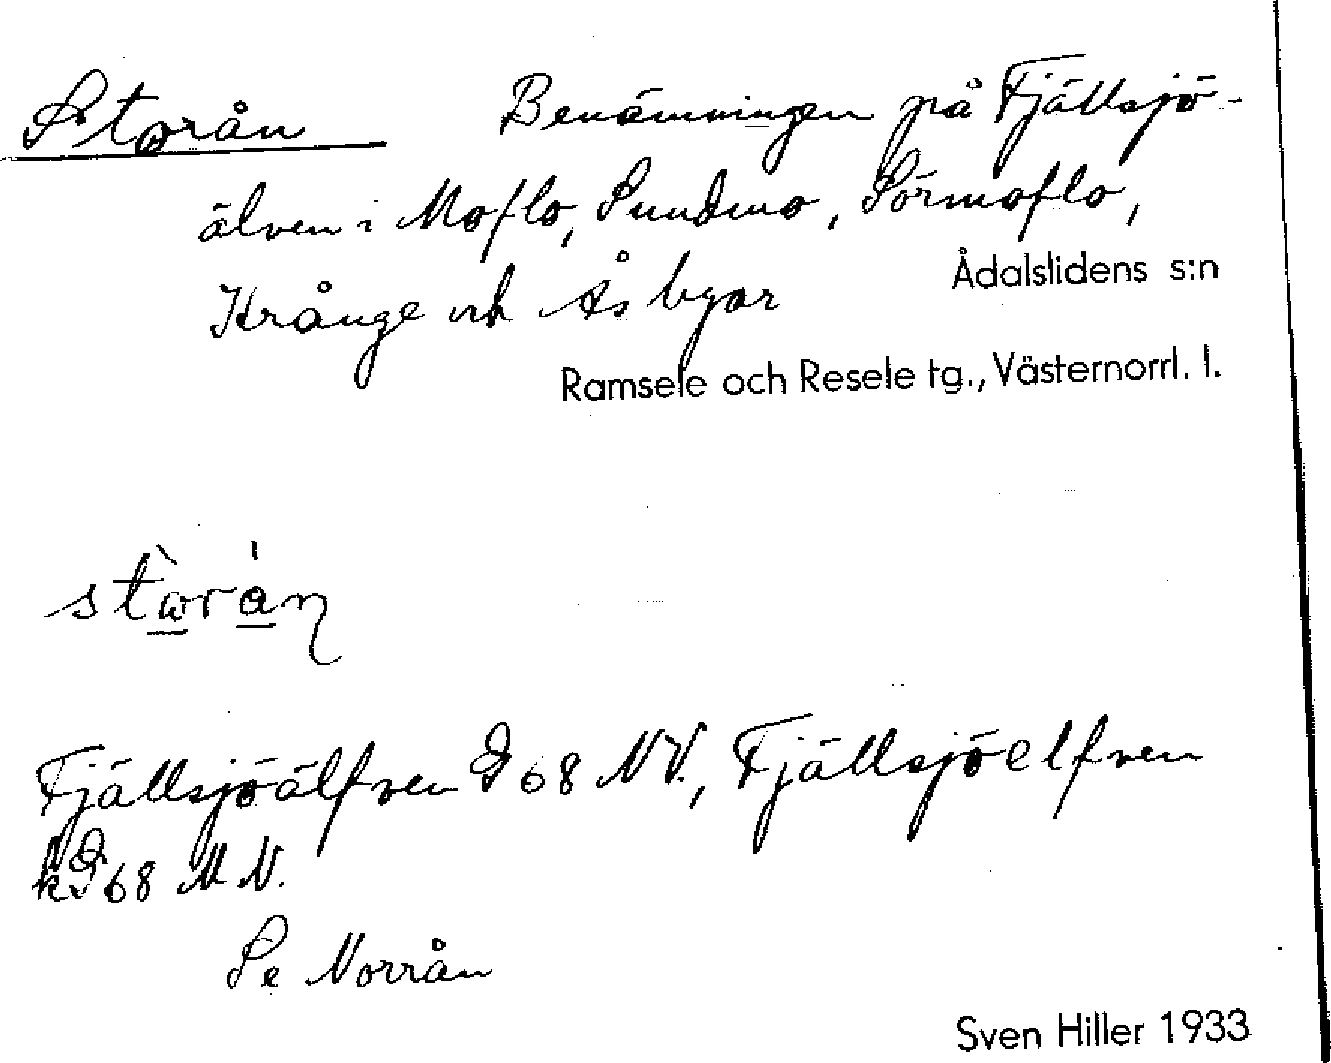 Storån Benämningen på Fjällsjö-
älven i Moflo, Sundmo, Sörmoflo,
Krånge och Ås byar
Ådalslidens s:n
Ramsele och Resele tg., Västernorrl. l.
stωrån
Fjällsjöälfven G 68 NV., Fjällsjöelfven
kG 68 N.V.
Se Norrån
Sven Hiller 1933